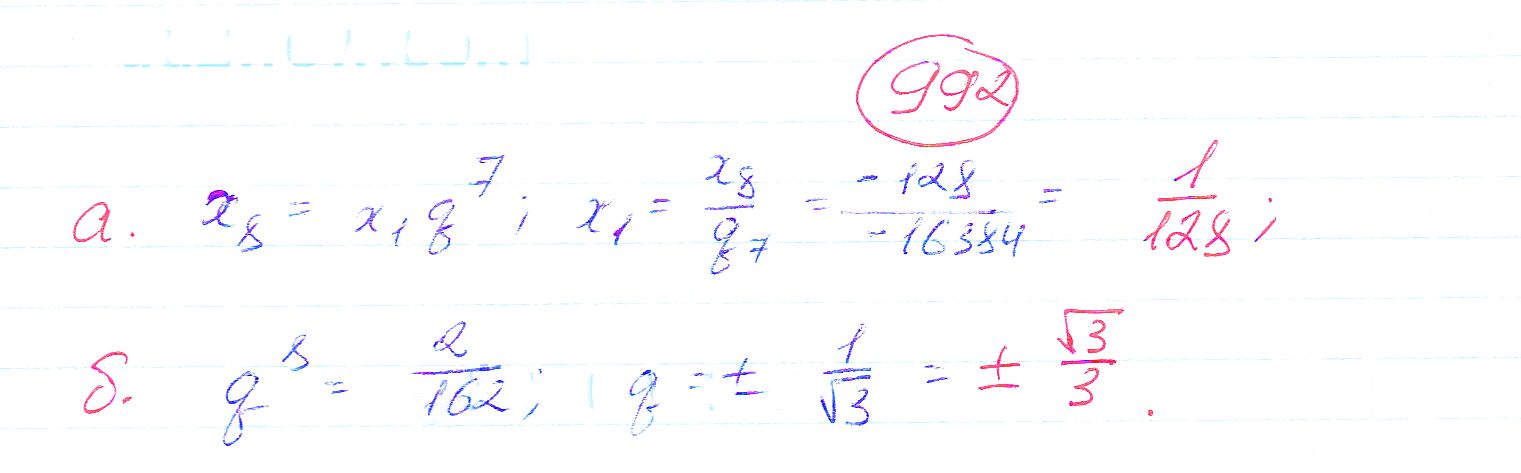 992
а. x₈ = x₁q⁷; x₁ = x₈/q₇ = -128/-16384 = 1/128;
б. q⁸ = 2/162; q = ± 1/√3 = ± √3/3.